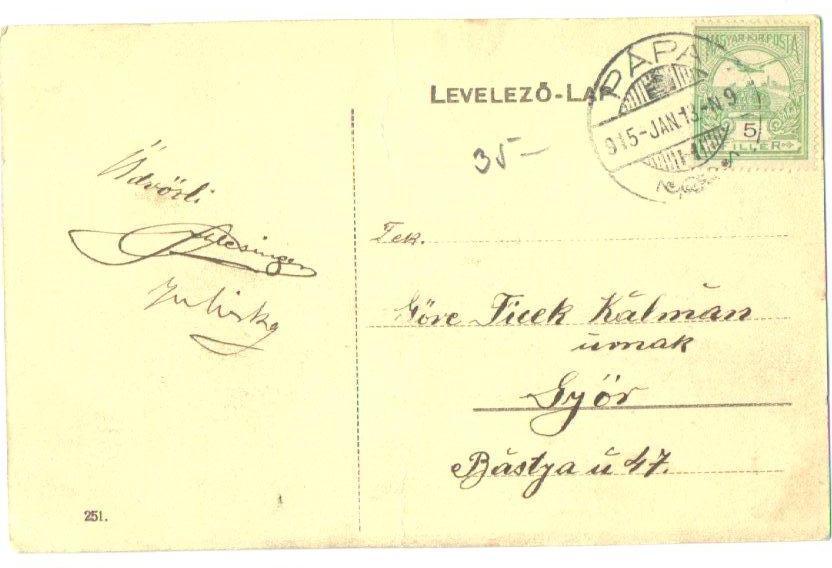 LEVELEZŐ-LAP
MAGYAR KIR. POSTA
5
FILLER
PÁPA
915-JAN.13-N9
35-
Üdvözli
Schlesinger
Juliska
Tek.
Göre Ficek Kálmán
úrnak
Győr
Bástya ú 47.
251.